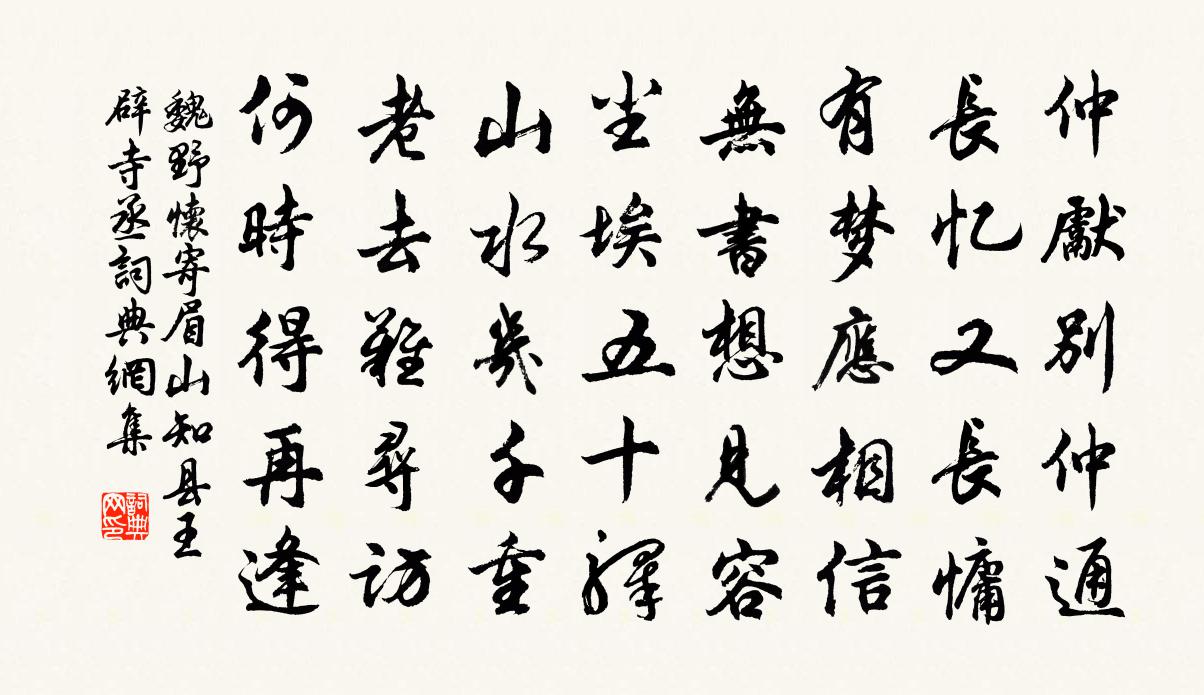 仲獻別仲通
長忆又長慵
有梦應相信
無書想見容
尘埃五十驛
山水幾千重
老去難尋訪
何時得再逢
魏野懷寄眉山知县王
辟寺丞詞典網集
詞典网印